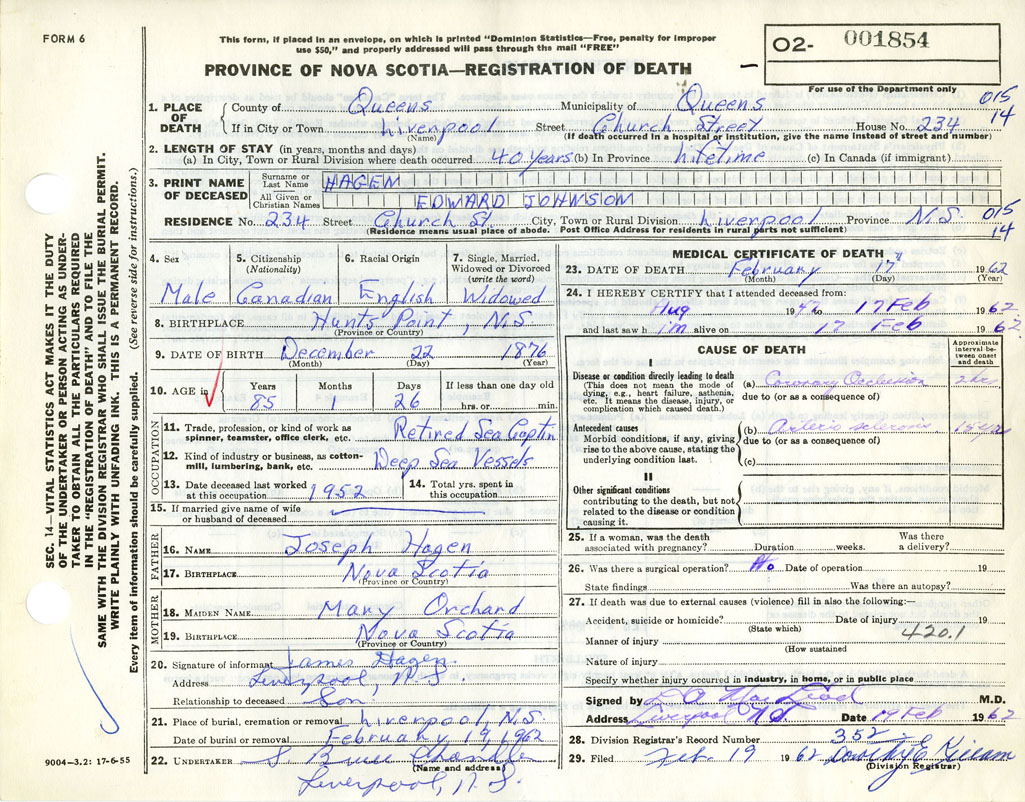 FORM 6
This form, if placed in an envelope, on which is printed "Dominion Statistics—Free, penalty for improper
use $50," and properly addressed will pass through the mail "FREE"
O2- 001854
For use of the Department only
PROVINCE OF NOVA SCOTIA—REGISTRATION OF DEATH
015
14
1. PLACE OF DEATH
County of Queens Municipality of Queens
If in City or Town Liverpool Street Church Street House No. 234
(Name) (If death occurred in a hospital or institution, give the name instead of street and number)
2. LENGTH OF STAY (in years, months and days)
(a) In City, Town or Rural Division where death occurred 40 years (b) In Province Lifetime (c) In Canada (if immigrant)
3. PRINT NAME OF DECEASED
Surname or Last Name HAGEN
All Given or Christian Names EDWARD JOHNSON
RESIDENCE No. 234 Street Church St. City, Town or Rural Division Liverpool Province N.S.
(Residence means usual place of abode. Post Office Address for residents in rural parts not sufficient)
015
14
4. Sex 5. Citizenship (Nationality) 6. Racial Origin 7. Single, Married, Widowed or Divorced (write the word)
Male Canadian English Widowed
8. BIRTHPLACE Hunts Point, N.S.
(Province or Country)
9. DATE OF BIRTH December 22 1876
(Month) (Day) (Year)
10. AGE in Years Months Days If less than one day old
85 1 26 hrs. or min.
OCCUPATION
11. Trade, profession, or kind of work as spinner, teamster, office clerk, etc. Retired Sea Captin
12. Kind of industry or business, as cotton-mill, lumbering, bank, etc. Deep Sea Vessels
13. Date deceased last worked at this occupation 1952 14. Total yrs. spent in this occupation
15. If married give name of wife or husband of deceased
FATHER
16. NAME Joseph Hagen
17. BIRTHPLACE Nova Scotia
(Province or Country)
MOTHER
18. MAIDEN NAME Mary Orchard
19. BIRTHPLACE Nova Scotia
(Province or Country)
20. Signature of informant James Hagen.
Address Liverpool, N.S.
Relationship to deceased Son
21. Place of burial, cremation or removal Liverpool, N.S.
Date of burial or removal February 19, 1962
22. UNDERTAKER
(Name and address)
Liverpool, N.S.
MEDICAL CERTIFICATE OF DEATH
23. DATE OF DEATH February 17 1962
(Month) (Day) (Year)
24. I HEREBY CERTIFY that I attended deceased from:
Aug 1947 to 17 Feb 1962
and last saw h im alive on 17 Feb 1962
CAUSE OF DEATH
Approximate interval between onset and death
I
Disease or condition directly leading to death
(This does not mean the mode of dying, e.g., heart failure, asthenia, etc. It means the disease, injury, or complication which caused death.)
(a) Coronary Occlusion
due to (or as a consequence of)
Antecedent causes
Morbid conditions, if any, giving rise to the above cause, stating the underlying condition last.
(b) Arterio sclerosis
due to (or as a consequence of)
(c)
II
Other significant conditions
contributing to the death, but not related to the disease or condition causing it.
25. If a woman, was the death associated with pregnancy? Duration weeks. Was there a delivery?
26. Was there a surgical operation? No Date of operation 19
State findings Was there an autopsy?
27. If death was due to external causes (violence) fill in also the following:—
Accident, suicide or homicide? Date of injury 19
(State which)
420.1
Manner of injury
(How sustained
Nature of injury
Specify whether injury occurred in industry, in home, or in public place
Signed by L A MacLeod M.D.
Address Liverpool N.S. Date 19 Feb 1962
28. Division Registrar's Record Number 352
29. Filed Feb. 19 1962 Dorothy E Killam
(Division Registrar)
SEC. 14—VITAL STATISTICS ACT MAKES IT THE DUTY
OF THE UNDERTAKER OR PERSON ACTING AS UNDER-
TAKER TO OBTAIN ALL THE PARTICULARS REQUIRED
IN THE "REGISTRATION OF DEATH" AND TO FILE THE
SAME WITH THE DIVISION REGISTRAR WHO SHALL ISSUE THE BURIAL PERMIT.
WRITE PLAINLY WITH UNFADING INK. THIS IS A PERMANENT RECORD.
Every item of information should be carefully supplied. (See reverse side for instructions.)
9004—3.2: 17-6-55